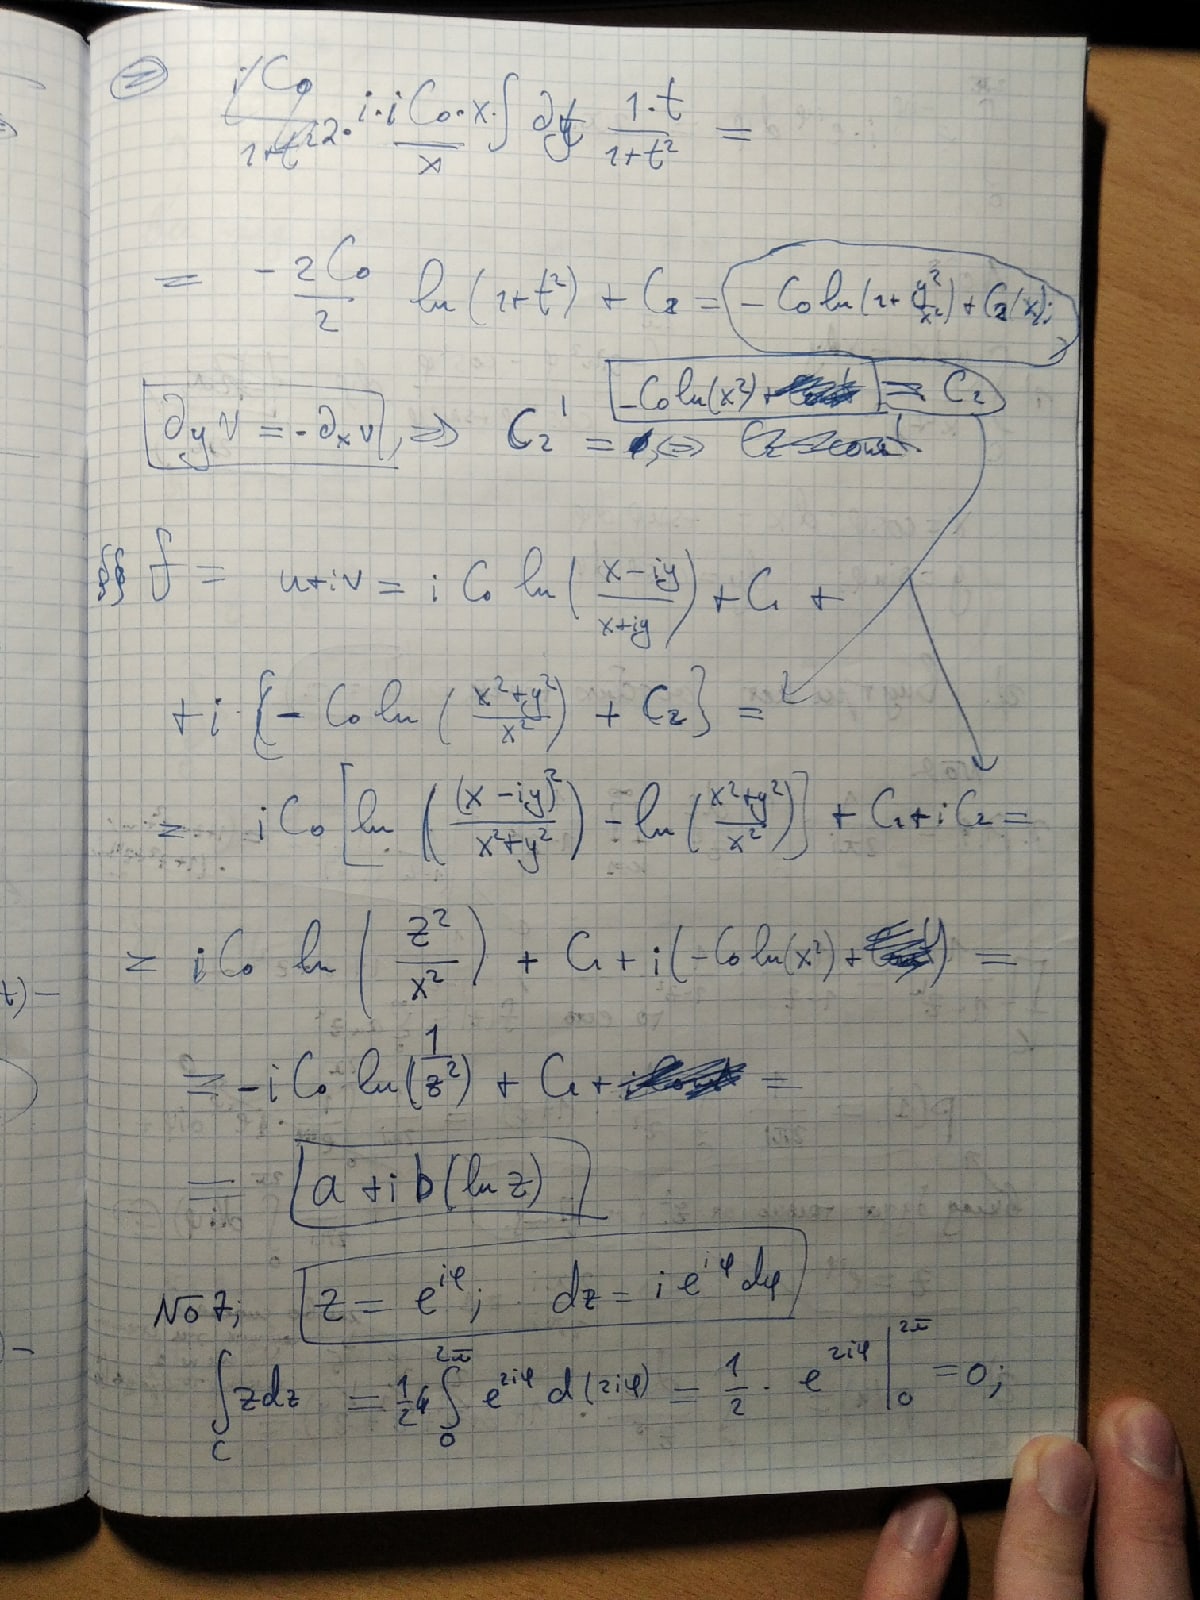 = i·i C₀·x · ∫ ∂t (1·t)/(1+t²) =
= -2C₀/2 ln(1+t²) + C₂ = -C₀ ln(1+y²/x²) + C₂(x);
-C₀ ln(x²) + = C₂
∂yV = -∂xV, ⇒ C₂' = , ⇔
f = u+iv = i C₀ ln((x-iy)/(x+iy)) + C₁ +
+i·{-C₀ ln((x²+y²)/x²) + C₂} =
= i C₀ [ln((x-iy)²/(x²+y²)) - ln((x²+y²)/x²)] + C₁+iC₂ =
= i C₀ ln(z²/x²) + C₁ + i(-C₀ ln(x²) + ) =
= -i C₀ ln(1/z²) + C₁ + =
= a + i b (ln z)
№7; z = e^{iφ}; dz = i e^{iφ} dφ
∫_C z dz = 1/2 ∫_0^{2π} e^{2iφ} d(2iφ) = 1/2 · e^{2iφ} |_0^{2π} = 0;